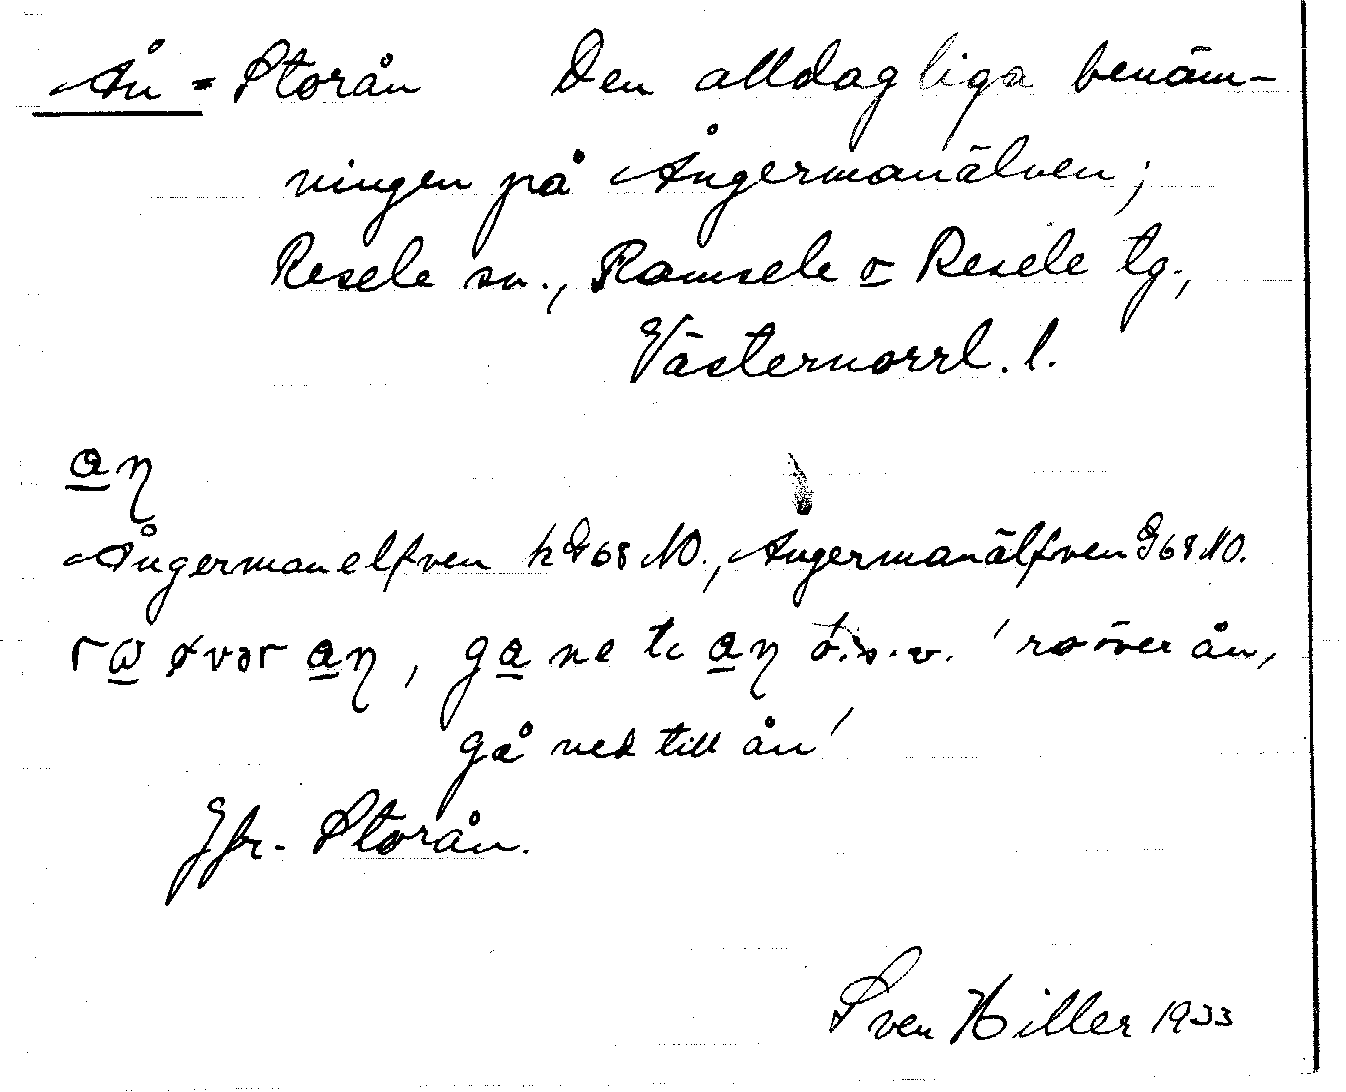 Ån = Storån Den alldagliga benäm-
ningen på Ångermanälven;
Resele sn., Ramsele o Resele tg.,
Västernorrl. l.
a̲η
Ångermanelfven k G68 NO., Ångermanälfven G68 NO.
rω̲ øvər a̲η, ga̲ ne te a̲η o.s.v. 'ro över ån,
gå ned till ån'
Jfr. Storån.
Sven Hiller 1933